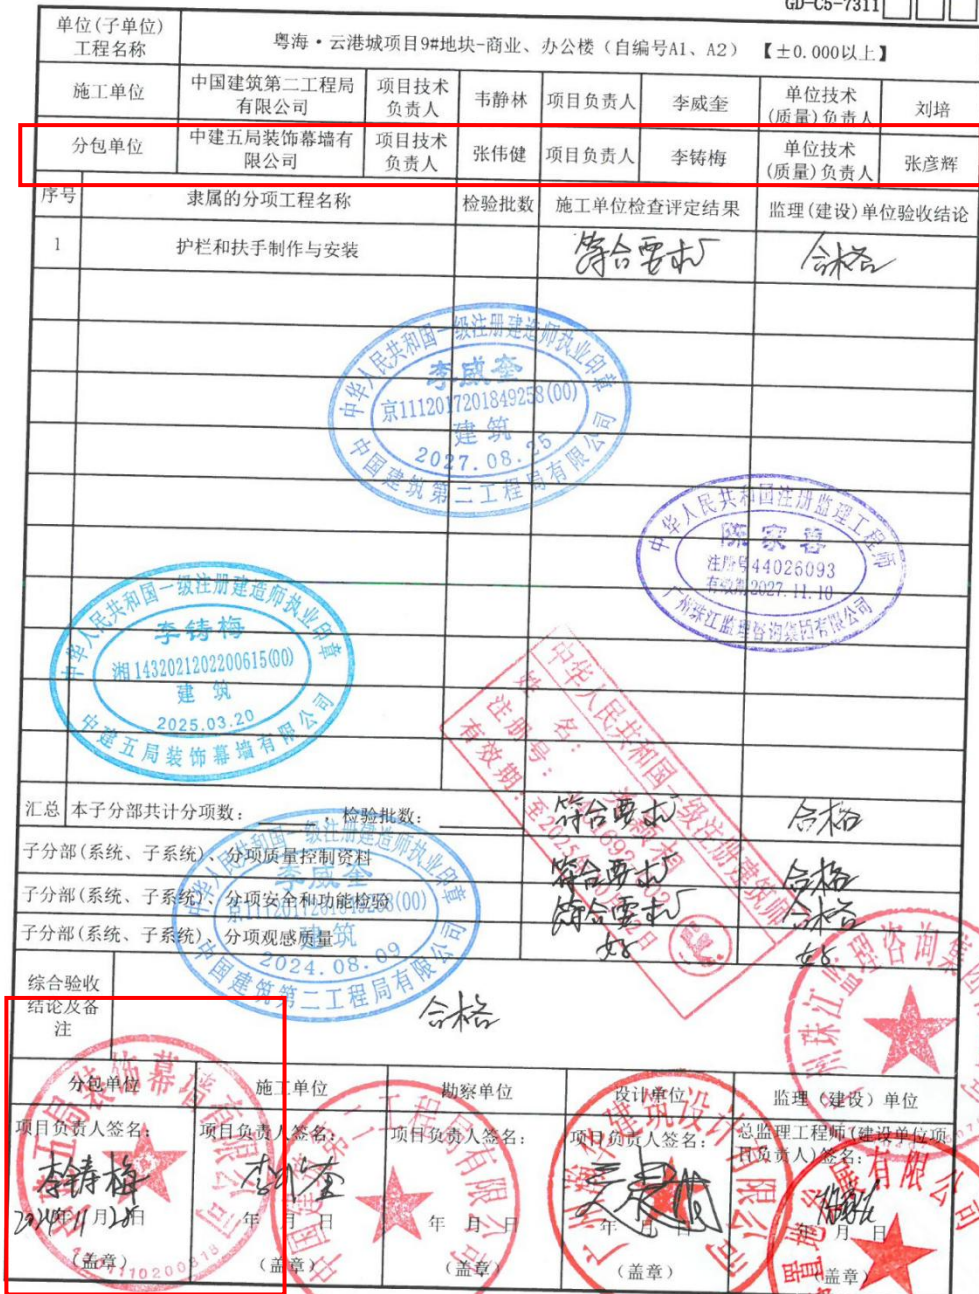 GD-C5-7311
单位(子单位)工程名称 粤海·云港城项目9#地块-商业、办公楼（自编号A1、A2）【±0.000以上】
施工单位 中国建筑第二工程局有限公司 项目技术负责人 韦静林 项目负责人 李威奎 单位技术(质量)负责人 刘培
分包单位 中建五局装饰幕墙有限公司 项目技术负责人 张伟健 项目负责人 李铸梅 单位技术(质量)负责人 张彦辉
序号 隶属的分项工程名称 检验批数 施工单位检查评定结果 监理(建设)单位验收结论
1 护栏和扶手制作与安装 符合要求 合格
中华人民共和国一级注册建造师执业印章
李威奎
京1112017201849258(00)
建筑
2027.08.25
中国建筑第二工程局有限公司
中华人民共和国注册监理工程师
注册号44026093
有效期2027.11.10
广州珠江监理咨询集团有限公司
中华人民共和国一级注册建造师执业印章
李铸梅
湘1432021202200615(00)
建筑
2025.03.20
中建五局装饰幕墙有限公司
中华人民共和国一级注册建筑师
姓名：
注册号：
有效期：
汇总 本子分部共计分项数： ，检验批数： 符合要求 合格
子分部(系统、子系统)、分项质量控制资料 符合要求 合格
子分部(系统、子系统)、分项安全和功能检验 符合要求 合格
子分部(系统、子系统)、分项观感质量 好 好
中华人民共和国一级注册建造师执业印章
李威奎
京1112017201849258(00)
建筑
2024.08.09
中国建筑第二工程局有限公司
综合验收结论及备注 合格
分包单位 施工单位 勘察单位 设计单位 监理（建设）单位
项目负责人签名： 项目负责人签名： 项目负责人签名： 项目负责人签名： 总监理工程师(建设单位项目负责人)签名：
李铸梅 李威奎
2024年11月28日 年 月 日 年 月 日 年 月 日 年 月 日
（盖章） （盖章） （盖章） （盖章） （盖章）